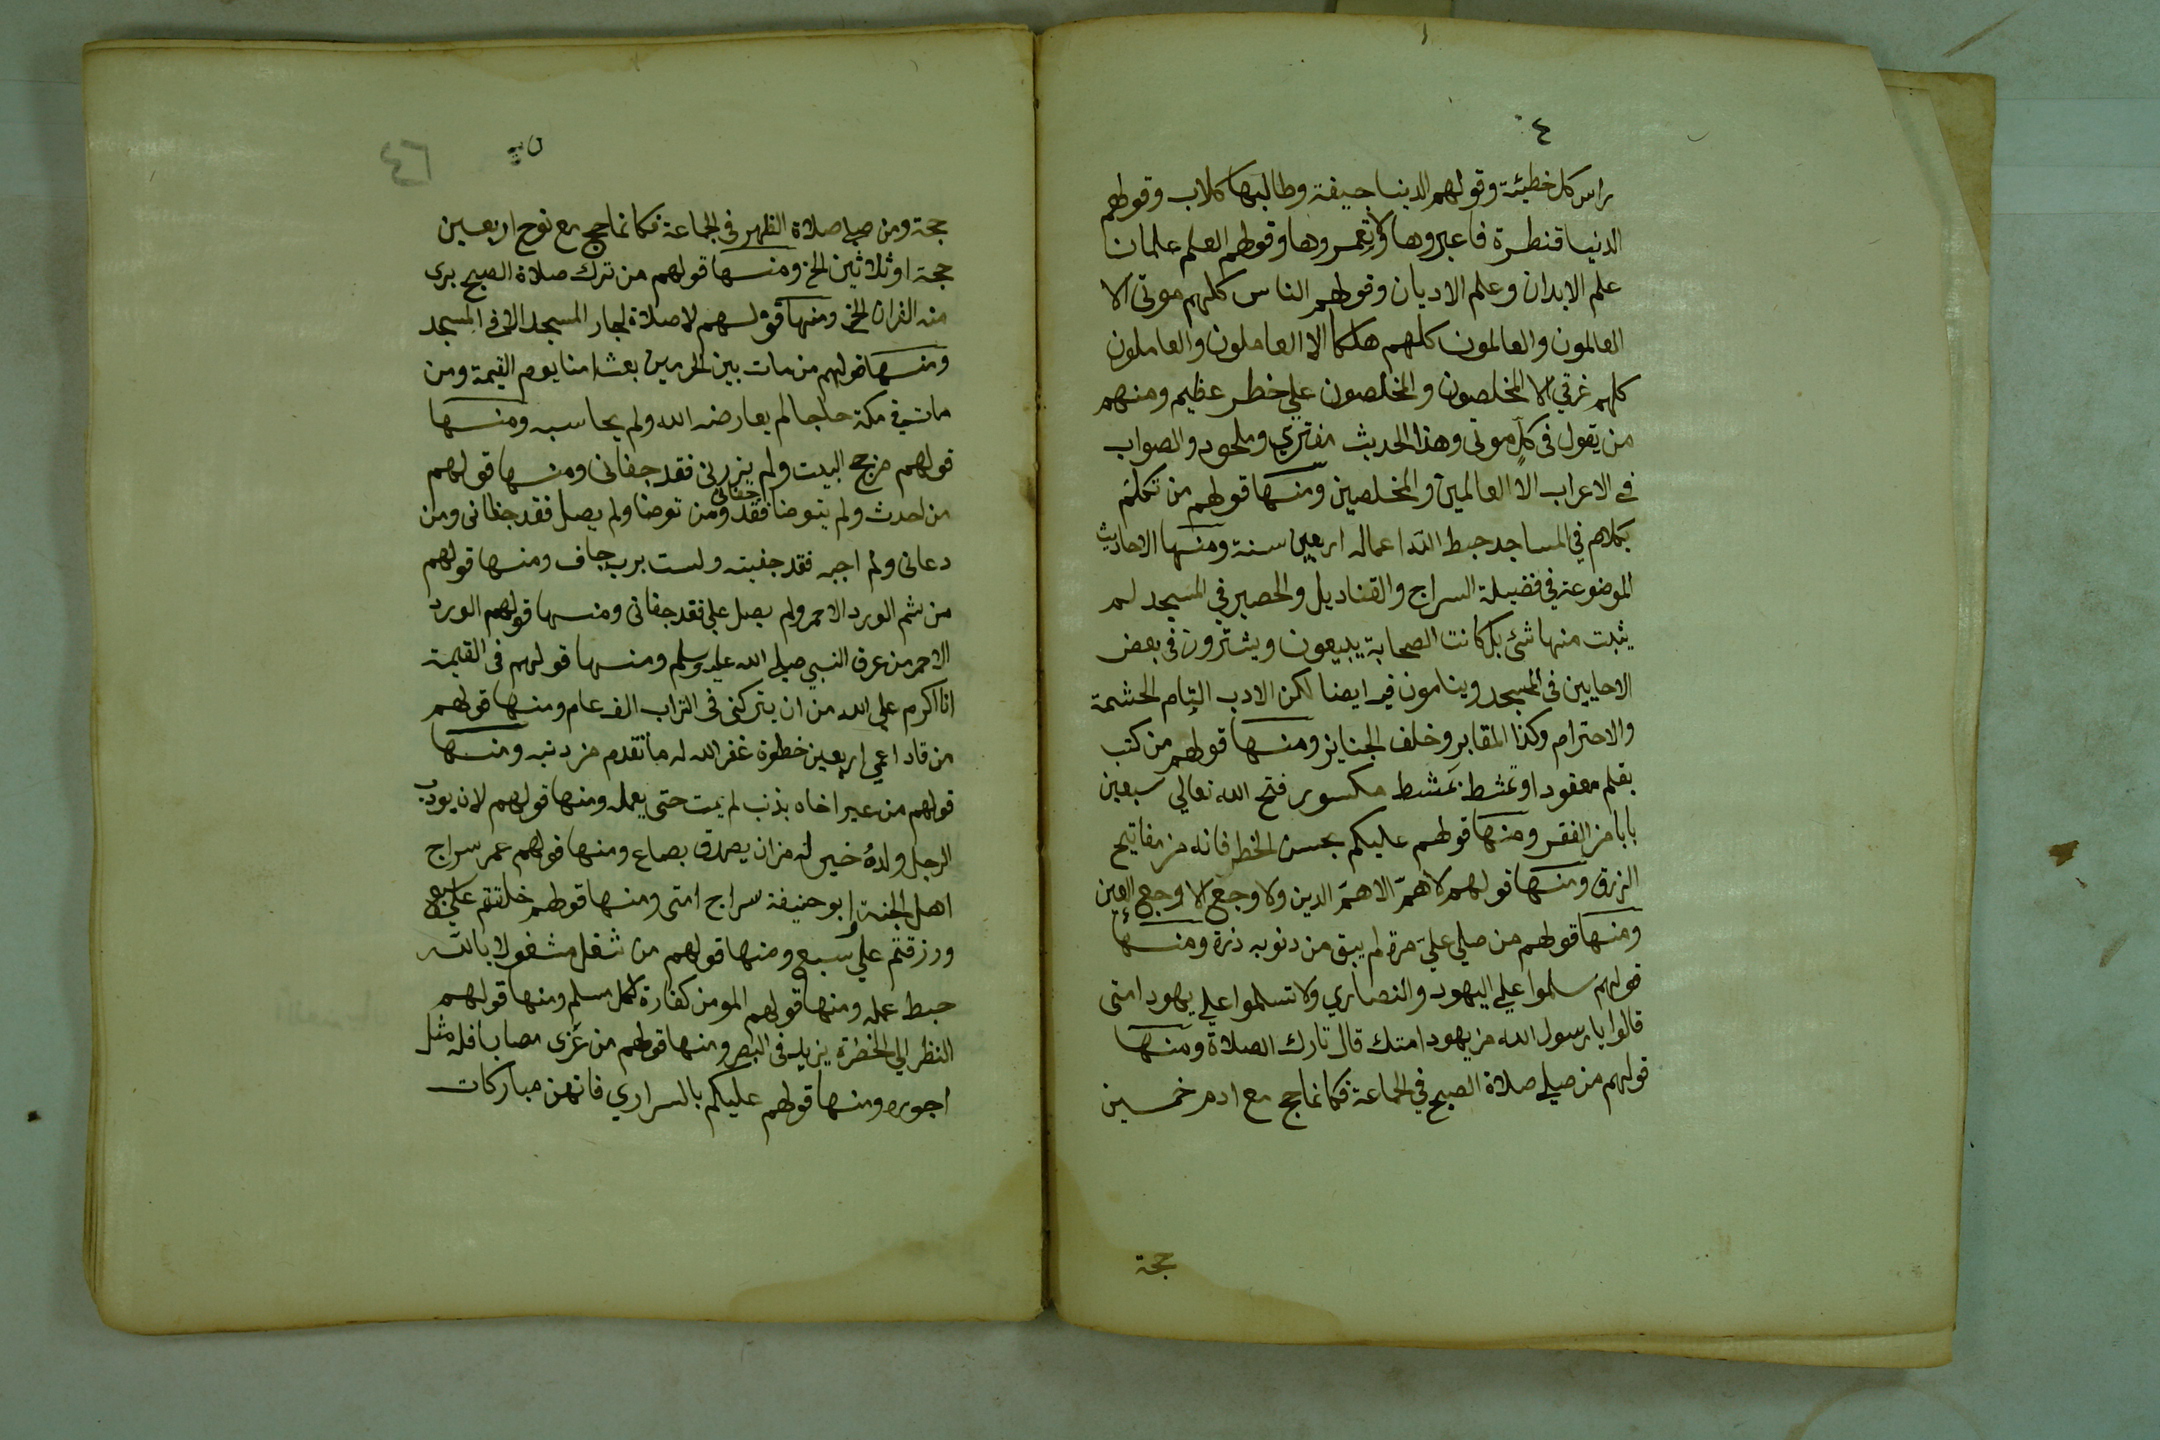 ٤
راس كل خطيئة وقولهم الدنيا جيفة وطالبها كلاب وقولهم
الدنيا قنطرة فاعبروها ولا تعمروها وقولهم العلم علمان
علم الابدان وعلم الاديان وقولهم الناس كلهم موتى الا
العالمون والعالمون كلهم هلكا الا العاملون والعاملون
كلهم غرقي الا المخلصون والمخلصون علي خطر عظيم ومنهم
من يقول في كل موتى وهذا الحديث مفتري وملحود والصواب
في الاعراب الا العالمين والمخلصين ومنها قولهم من تكلم
بكلام في المساجد حبط الله اعماله اربعين سنة ومنها الاحاديث
الموضوعة في فضيلة السراج والقناديل والحصير في المسجد لم
يثبت منها شئ بل كانت الصحابة يبيعون ويشترون في بعض
الاحايين في المسجد وينامون فيه ايضا لكن الادب التام الحشمة
والاحترام وكذا المقابر وخلف الجنايز ومنها قولهم من كتب
بقلم معقود او تمشط بمشط مكسور فتح الله تعالي سبعين
بابا من الفقر ومنها قولهم عليكم بحسن الخط فانه من مفاتيح
الرزق ومنها قولهم لا همّ الا همّ الدين ولا وجع الا وجع العين
ومنها قولهم من صلي عليّ مرة لم يبق من ذنوبه ذرة ومنها
قولهم سلموا علي اليهود والنصاري ولا تسلموا علي يهود امتى
قالوا يا رسول الله من يهود امتك قال تارك الصلاة ومنها
قولهم من صلي صلاة الصبح في الجماعة فكانما حج مع ادم خمسين
حجة
٥
٦٤
حجة ومن صلي صلاة الظهر في الجماعة فكانما حج مع نوح اربعين
حجة او ثلاثين الخ ومنها قولهم من ترك صلاة الصبح برى
منه القران الخ ومنها قولهم لا صلاة لجار المسجد الا في المسجد
ومنها قولهم من مات بين الحرمين بعث امنا يوم القيمة ومن
مات في مكة حاجا لم يعارضه الله ولم يحاسبه ومنها
قولهم من حج البيت ولم يزرني فقد جفانى ومنها قولهم
من احدث ولم يتوضا فقد جفاني ومن توضا ولم يصل فقد جفانى ومن
دعانى ولم اجبه فقد جفيته ولست برب جاف ومنها قولهم
من شم الورد الاحمر ولم يصل علي فقد جفانى ومنها قولهم الورد
الاحمر من عرق النبي صلي الله عليه وسلم ومنها قولهم في القيمة
انا اكرم علي الله من ان يتركنى في التراب الف عام ومنها قولهم
من قاد اعمي اربعين خطوة غفر الله له ما تقدم من ذنبه ومنها
قولهم من عير اخاه بذنب لم يمت حتى يعمله ومنها قولهم لان يودب
الرجل ولدهُ خير له من ان يصدق بصاع ومنها قولهم عمر سراج
اهل الجنة وابو حنيفة سراج امتى ومنها قولهم خلقتم علي سبع
ورزقتم علي سبع ومنها قولهم من شغل مشغولا بالله
حبط عمله ومنها قولهم المومن كفارة لكل مسلم ومنها قولهم
النظر الي الخضرة يزيد في البصر ومنها قولهم من عزى مصابا فله مثل
اجوره ومنها قولهم عليكم بالسراري فانهن مباركات